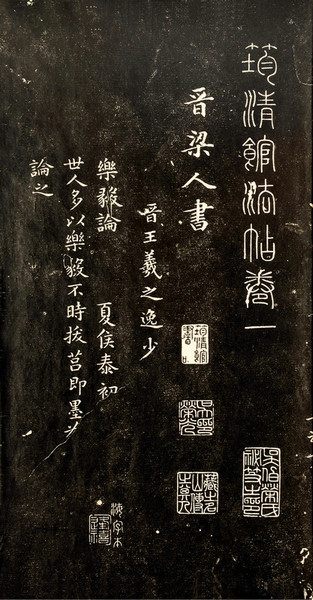 筠清館法帖卷一
晉梁人書
晉王羲之逸少
樂毅論　夏侯泰初
世人多以樂毅不時拔莒即墨
論之
筠清館